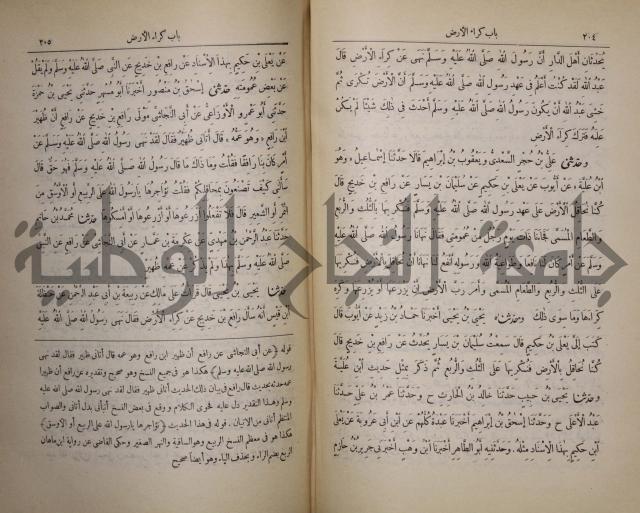 ٢٠٤ باب كراء الأرض
يحدثان أهل الدار أن رسول الله صلى الله عليه وسلم نهى عن كراء الأرض قال
عبد الله لقد كنت أعلم في عهد رسول الله صلى الله عليه وسلم أن الأرض تكرى ثم
خشى عبد الله أن يكون رسول الله صلى الله عليه وسلم أحدث في ذلك شيئا لم يكن
علمه فترك كراء الأرض
وحدثني علي بن حجر السعدي ويعقوب بن إبراهيم قالا حدثنا إسماعيل وهو
ابن علية عن أيوب عن يعلى بن حكيم عن سليمان بن يسار عن رافع بن خديج قال
كنا نحاقل الأرض على عهد رسول الله صلى الله عليه وسلم فنكريها بالثلث والربع
والطعام المسمى فجاءنا ذات يوم رجل من عمومتي فقال نهانا رسول الله صلى الله عليه
وسلم عن أمر كان لنا نافعا وطواعية الله ورسوله أنفع لنا نهانا أن نحاقل بالأرض فنكريها
على الثلث والربع والطعام المسمى وأمر رب الأرض أن يزرعها أو يزرعها وكره
كراءها وما سوى ذلك وحدثناه يحيى بن يحيى أخبرنا حماد بن زيد عن أيوب قال
كتب إلى يعلى بن حكيم قال سمعت سليمان بن يسار يحدث عن رافع بن خديج قال
كنا نحاقل بالأرض فنكريها على الثلث والربع ثم ذكر بمثل حديث ابن علية
وحدثنا يحيى بن حبيب حدثنا خالد بن الحارث ح وحدثنا عمرو بن علي حدثنا
عبد الأعلى ح وحدثنا إسحق بن إبراهيم أخبرنا عبدة كلهم عن ابن أبي عروبة عن يعلى
ابن حكيم بهذا الإسناد مثله. وحدثنيه أبو الطاهر أخبرنا ابن وهب أخبرني جرير بن حازم
باب كراء الأرض ٢٠٥
عن يعلى بن حكيم بهذا الاسناد عن رافع بن خديج عن النبي صلى الله عليه وسلم ولم يقل
عن بعض عمومته حدثني إسحق بن منصور أخبرنا أبو مسهر حدثني يحيى بن حمزة
حدثني أبو عمرو الأوزاعي عن أبي النجاشي مولى رافع بن خديج عن رافع أن ظهير
ابن رافع وهو عمه قال أتاني ظهير فقال لقد نهى رسول الله صلى الله عليه وسلم عن
أمر كان بنا رافقا فقلت وما ذاك ما قال رسول الله صلى الله عليه وسلم فهو حق قال
سألني كيف تصنعون بمحاقلكم فقلت نؤاجرها يا رسول الله على الربيع أو الأوسق من
التمر أو الشعير قال فلا تفعلوا ازرعوها أو أزرعوها أو أمسكوها حدثنا محمد بن حاتم
حدثنا عبد الرحمن بن مهدي عن عكرمة بن عمار عن أبي النجاشي عن رافع عن النبي
صلى الله عليه وسلم بهذا ولم يذكر عن عمه ظهير
حدثنا يحيى بن يحيى قال قرأت على مالك عن ربيعة بن أبي عبد الرحمن عن حنظلة
ابن قيس أنه سأل رافع بن خديج عن كراء الأرض فقال نهى رسول الله صلى الله عليه
قوله (عن أبي النجاشي عن رافع أن ظهير ابن رافع وهو عمه قال أتاني ظهير فقال لقد نهى
رسول الله صلى الله عليه وسلم) هكذا هو في جميع النسخ وهو صحيح وتقديره عن رافع أن ظهيرا
عمه حدثه بحديث قال رافع في بيان ذلك الحديث أتاني ظهير فقال لقد نهى رسول الله صلى الله عليه
وسلم وهذا التقدير دل عليه فحوى الكلام ووقع في بعض النسخ أنبأني بدل أتاني والصواب
المنتظم أتاني من الاتيان. قوله في هذا الحديث (نؤاجرها يارسول الله على الربيع أو الاوسق)
هكذا هو في معظم النسخ الربيع وهو الساقية والنهر الصغير وحكى القاضي عن رواية ابن ماهان
الربع بضم الراء وبحذف الياء وهو أيضا صحيح
جامعة النجاح الوطنية